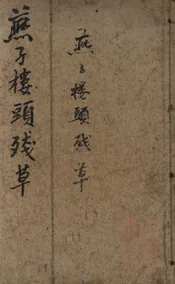 燕子樓頭殘草
燕子樓頭殘草